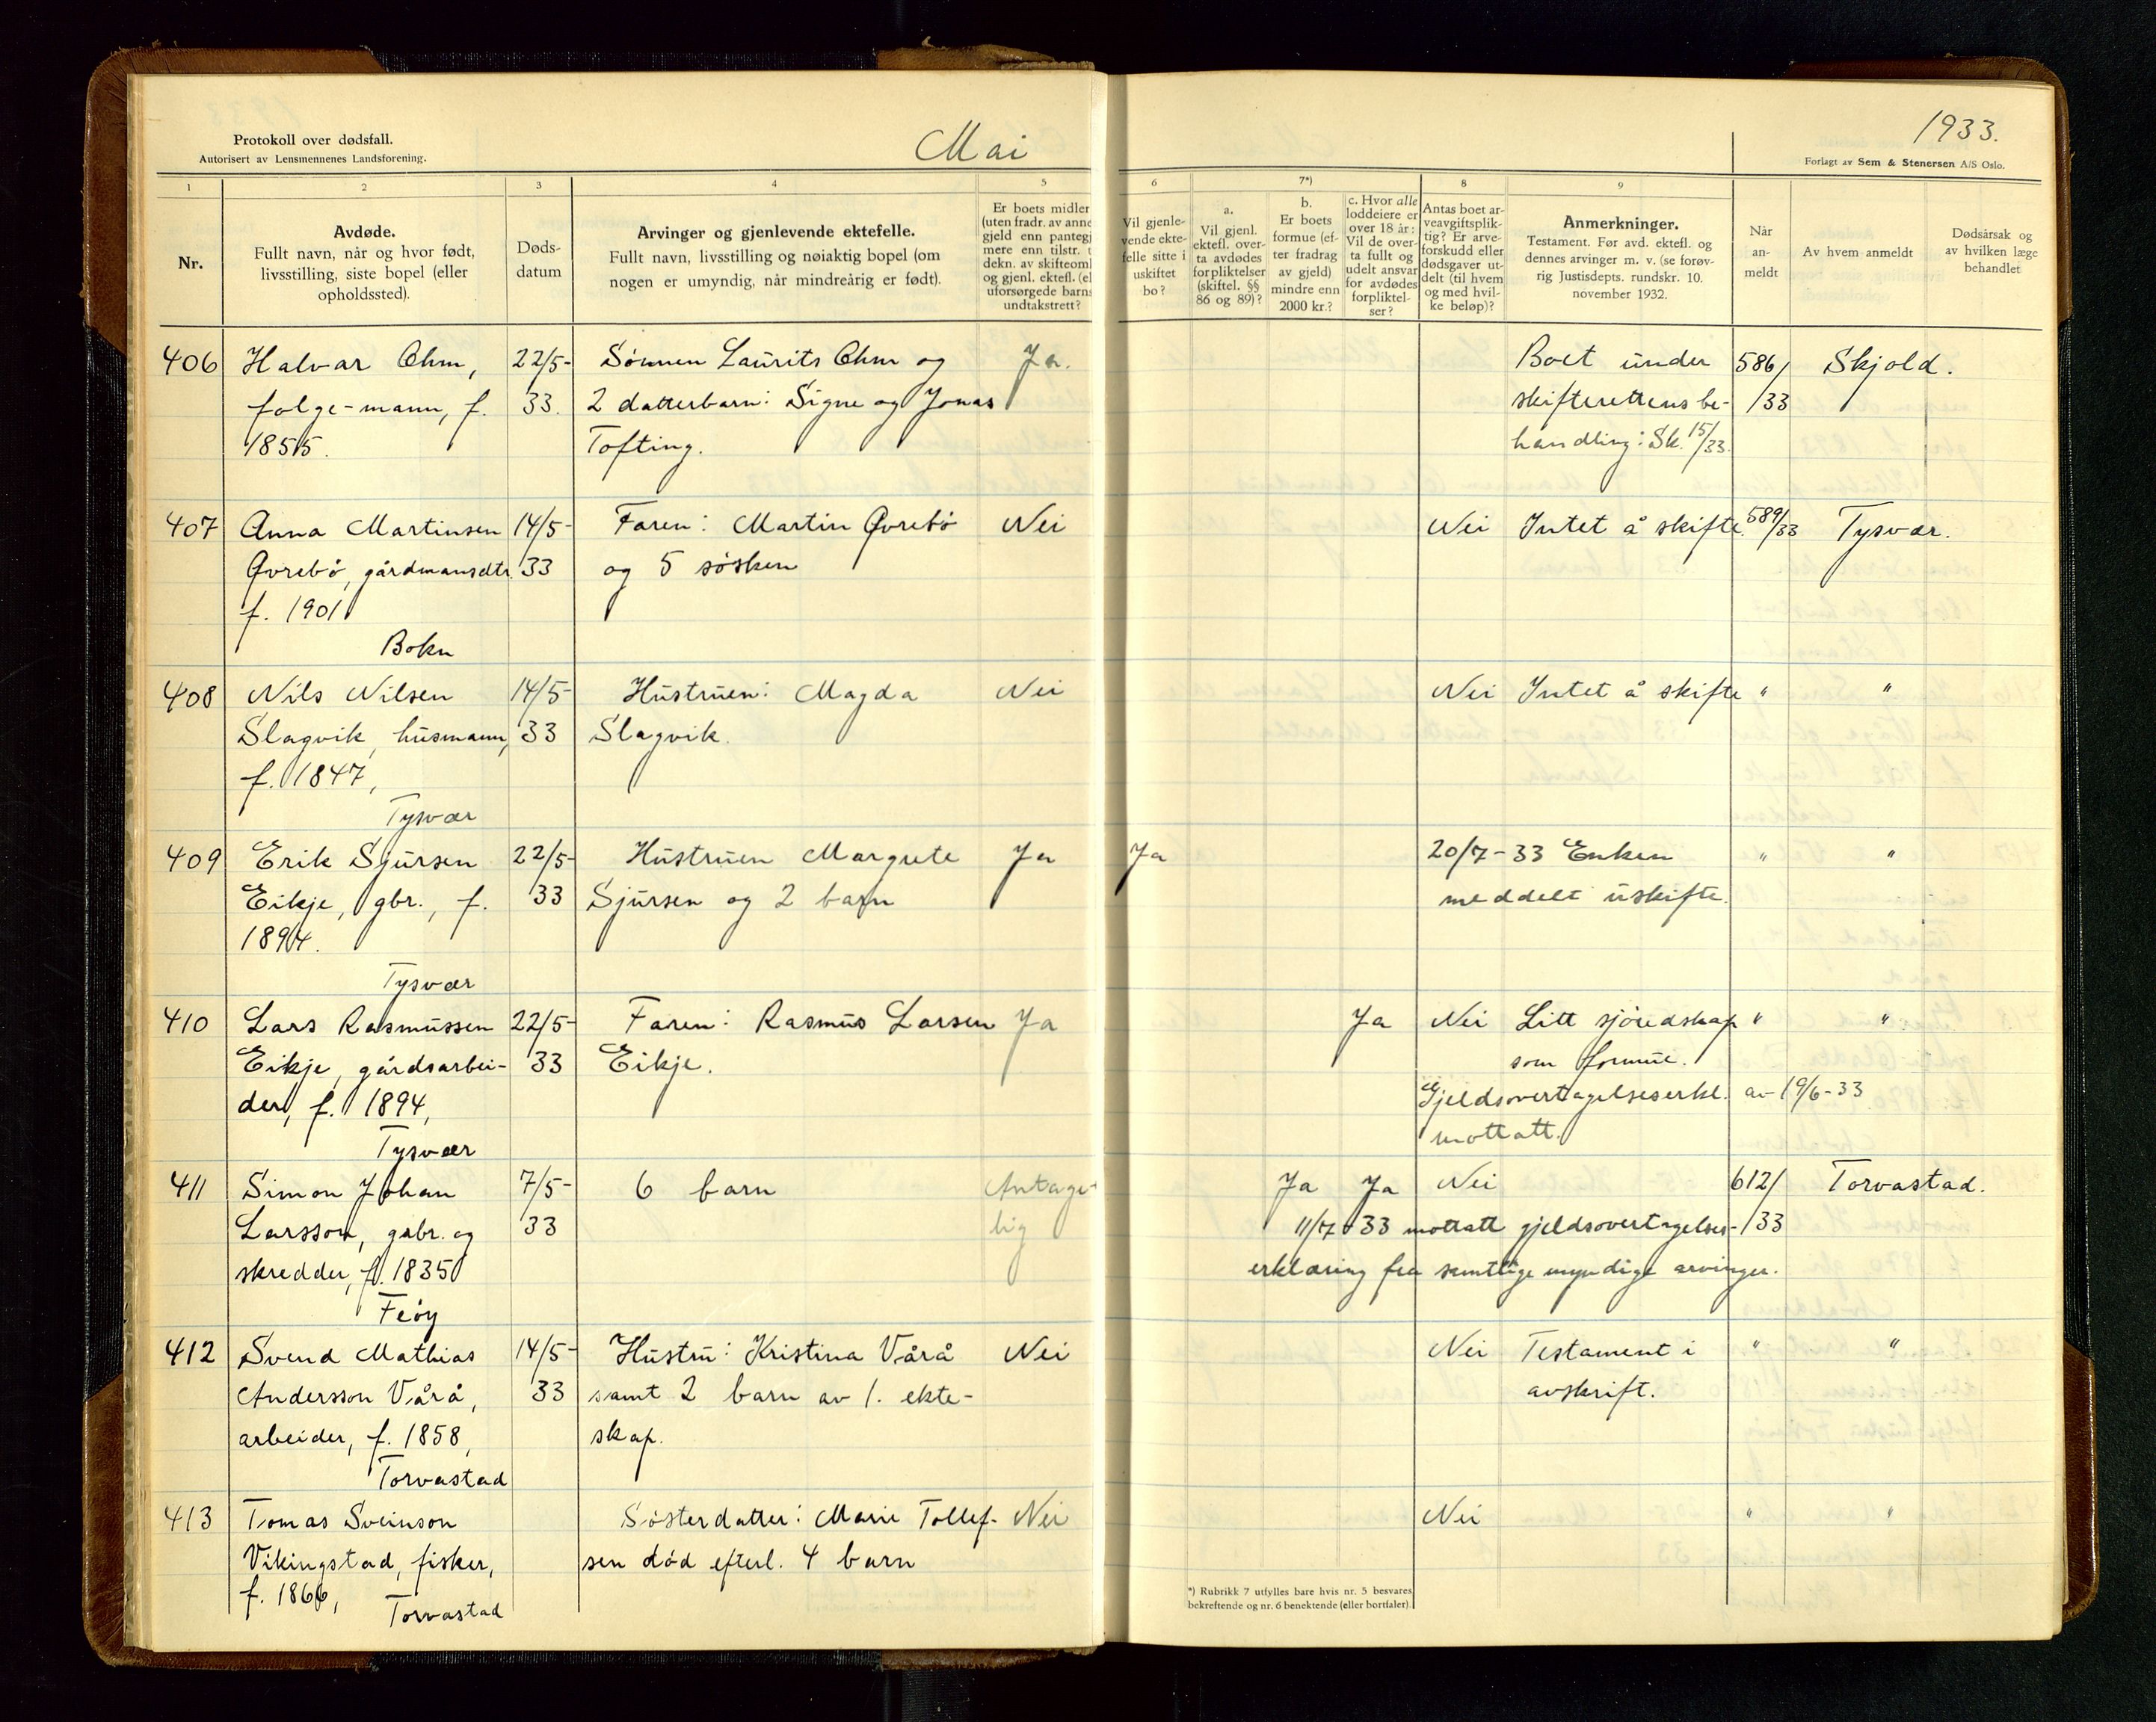 Protokoll over dødsfall.
Autorisert av Lensmennenes Landsforening.
Mai
1933.
Forlagt av Sem & Stenersen A/S Oslo.
1
2
3
4
5
6
7*)
8
9
Nr.
Avdøde.
Fullt navn, når og hvor født,
livsstilling, siste bopel (eller
opholdssted).
Døds-
datum
Arvinger og gjenlevende ektefelle.
Fullt navn, livsstilling og nøiaktig bopel (om
nogen er umyndig, når mindreårig er født).
Er boets midler
(uten fradr. av anne
gjeld enn pantegj
mere enn tilstr. t
dekn. av skifteoml
og gjenl. ektefl. (el
uforsørgede barns
undtakstrett?
Vil gjenle-
vende ekte-
felle sitte i
uskiftet
bo?
a.
Vil gjenl.
ektefl. over-
ta avdødes
forpliktelser
(skiftel. §§
86 og 89)?
b.
Er boets
formue (ef-
ter fradrag
av gjeld)
mindre enn
2000 kr.?
c. Hvor alle
loddeiere er
over 18 år:
Vil de over-
ta fullt og
udelt ansvar
for avdødes
forpliktel-
ser?
Antas boet ar-
veavgiftsplik-
tig? Er arve-
forskudd eller
dødsgaver ut-
delt (til hvem
og med hvil-
ke beløp)?
Anmerkninger.
Testament. Før avd. ektefl. og
dennes arvinger m. v. (se forøv-
rig Justisdepts. rundskr. 10.
november 1932.
Når
an-
meldt
Av hvem anmeldt
Dødsårsak og
av hvilken læge
behandlet
406 Halvar Ohm, 22/5- Sønnen Laurits Ohm og Ja. Boet under 586/ Skjold.
folge-mann, f. 33. 2 datterbarn: Signe og Jonas skifterettens be- /33
1855. Tofting. handling: Sk. 15/33.
407 Anna Martinsen 14/5- Faren: Martin Øvrebö Nei Nei Intet å skifte. 589/33 Tysvær.
Øvrebö, gårdmansdtr. 33 og 5 søsken
f. 1901
Bokn
408 Nils Nilsen 14/5- Hustruen: Magda Nei Nei Intet å skifte " "
Slagvik, husmann, 33 Slagvik.
f. 1847,
Tysvær
409 Erik Sjursen 22/5- Hustruen Margrete Ja Ja 20/7-33 Enken " "
Eikje, gbr., f. 33 Sjursen og 2 barn meddelt uskifte.
1894.
Tysvær
410 Lars Rasmussen 22/5- Faren: Rasmus Larsen Ja Ja Nei Litt sjöredskap " "
Eikje, gårdsarbei- 33 Eikje. som formue.
der, f. 1894, Gjeldsovertagelseserkl. av 19/6-33
mottatt.
Tysvær
411 Simon Johan 7/5- 6 barn Antage- Ja Ja Nei 612/ Torvastad.
Larsson, gabr. og 33 lig 11/7-33 mottatt gjeldsovertagelses- /33
skredder, f. 1835 erklæring fra samtlige myndige arvinger.
Feöy
412 Svend Mathias 14/5- Hustru: Kristina Vårå Nei Nei Testament i " "
Andersson Vårå, 33 samt 2 barn av 1. ekte- avskrift.
arbeider, f. 1858, skap.
Torvastad
413 Tomas Sveinson Sösterdatter: Marie Tollef- Nei Nei " "
Vikingstad, fisker, sen død efterl. 4 barn
f. 1866, Torvastad
*) Rubrikk 7 utfylles bare hvis nr. 5 besvares
bekreftende og nr. 6 benektende (eller bortfaler).